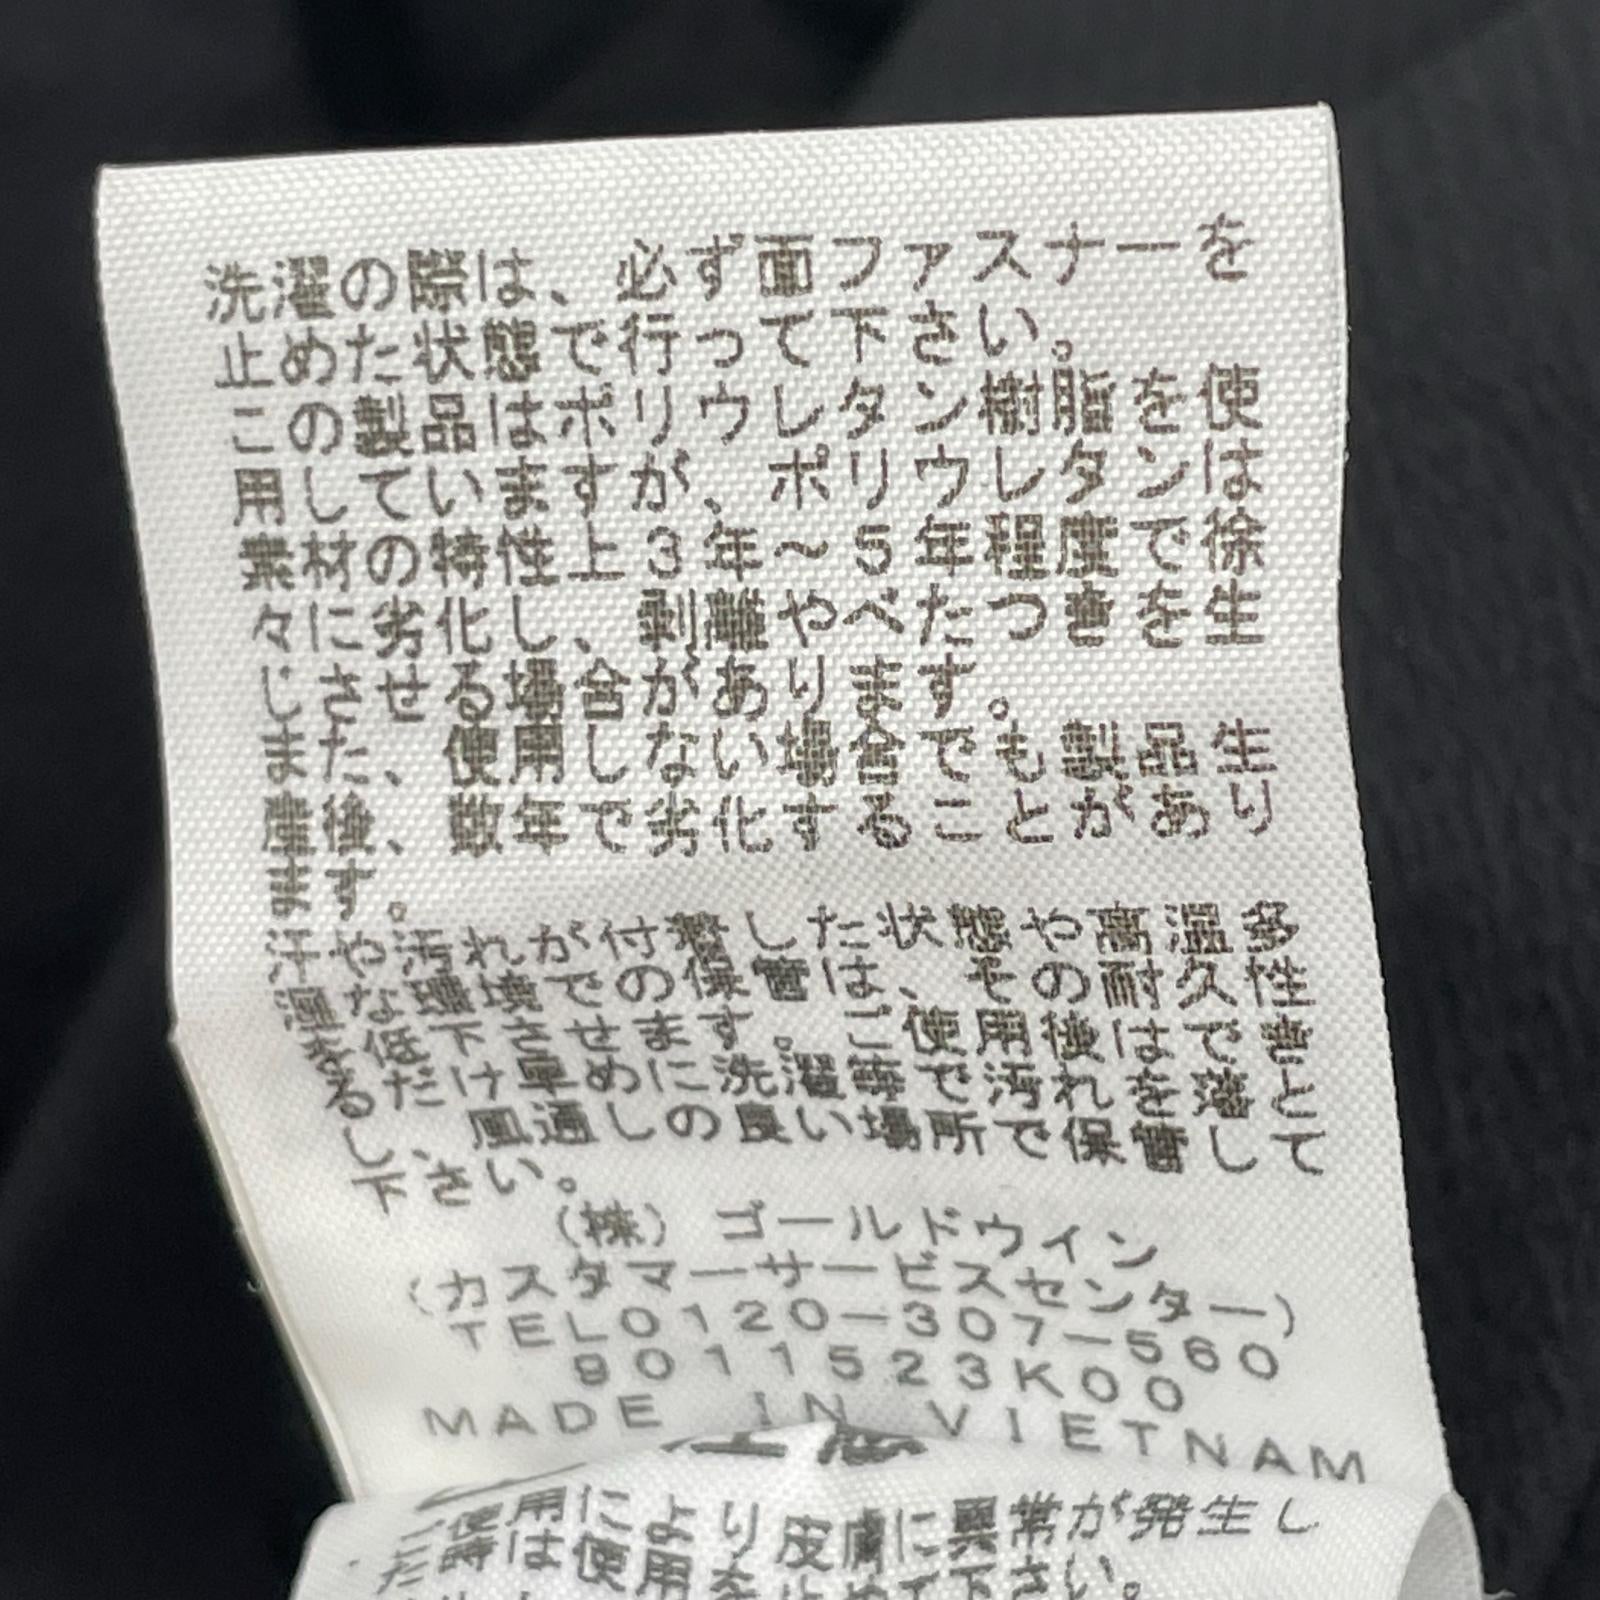 洗濯の際は、必ず面ファスナーを
止めた状態で行って下さい。
この製品はポリウレタン樹脂を使
用していますが、ポリウレタンは
素材の特性上3年~5年程度で徐
々に劣化し、剥離やべたつきを生
じさせる場合があります。
また、使用しない場合でも製品生
産後、数年で劣化することがあり
ます。
汗や汚れが付着した状態や高温多
湿な環境での保管は、その耐久性
を低下させます。ご使用後はでき
るだけ早めに洗濯等で汚れを落と
し、風通しの良い場所で保管して
下さい。
(株)ゴールドウイン
(カスタマーサービスセンター)
TEL0120-307-560
9011523K00
MADE IN VIETNAM
ご使用により皮膚に異常が発生し
た時は使用を止めて下さい。